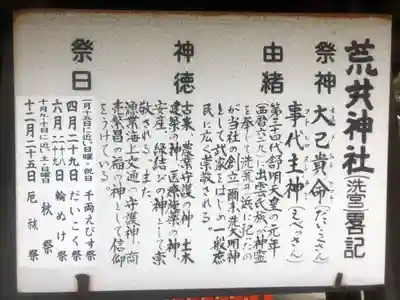 荒井神社(洗宮)畧記
祭神
大己貴命(だいこくさん)
事代主神(えべっさん)
由緒
第三十四代舒明天皇の元年
(西暦六二九)に出雲氏族が神霊
を奉じて洗荒井浜に祀ったの
が当社の創立
爾来洗大明神
として代家をはじめ一般庶
民に広く崇敬される。
神徳
古来、農業守護神、土木
建築の神、医療施薬の神、
安産、縁結びの神として崇
敬される。また、
漁業海上交通の守護神、商
売繁昌の福の神として信仰
をうけている。
祭日
一月十五日に近い日曜・祝日 千両えびす祭
四月二十九日 だいこく祭
六月二十九日 輪ぬけ祭
十月十日に近い土・日曜日 秋祭
十二月二十五日 厄祓祭